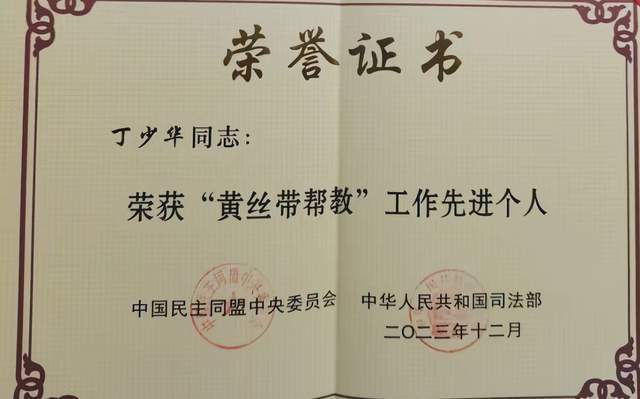 荣誉证书
丁少华同志：
荣获“黄丝带帮教”工作先进个人
中国民主同盟中央委员会
中华人民共和国司法部
二〇二三年十二月